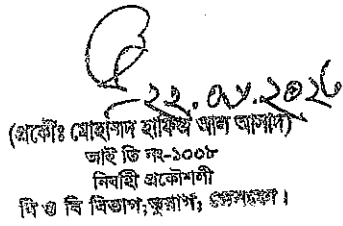 ২২.০৮.২০২৮
(প্রকৌঃ মোহাম্মদ হাফিজ আল আসাদ)
আই ডি নং-১০০৮
নির্বাহী প্রকৌশলী
বি ও বি বিভাগ,